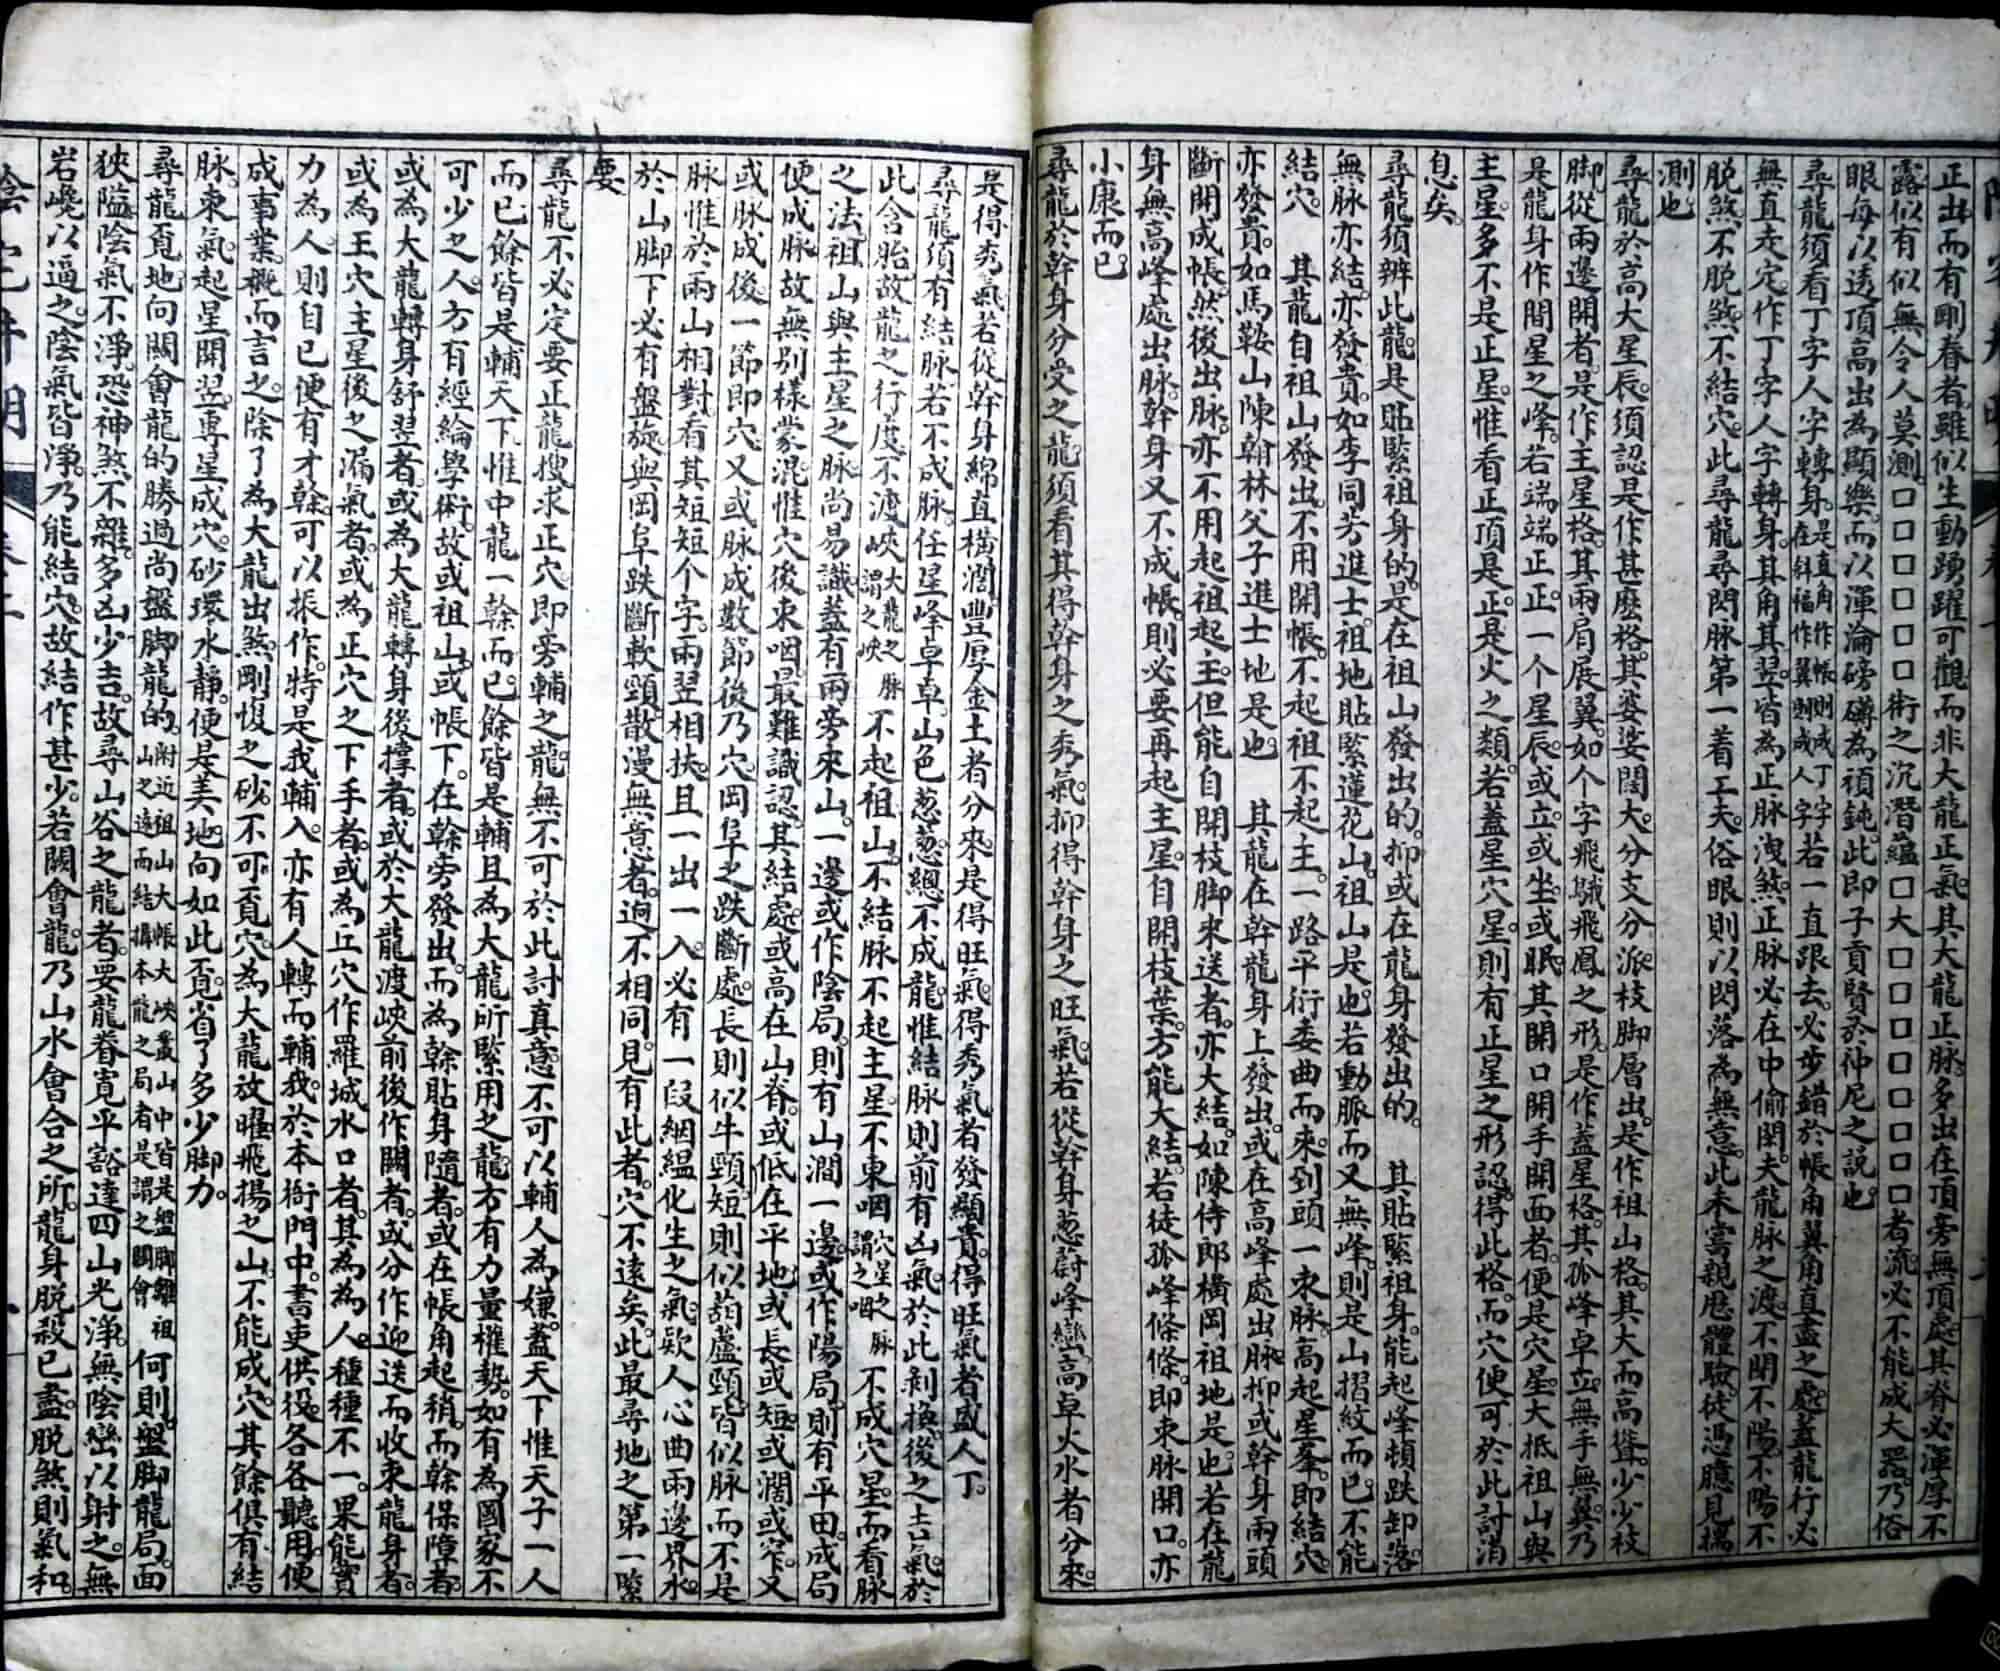 正出而有剛眷者雖似生動踴躍可觀而非大龍正氣其大龍正脉多出在頂旁無頂處其脊必渾厚不
露似有似無令人莫測口口口口口口術之沉潛蘊口大口口口口口口口者流必不能成大器乃俗
眼每以透頂高出為顯樂而以渾淪磅礡為頑鈍此即子貢賢於仲尼之說也
尋龍須看丁字人字轉身是直角作帳則成丁字在斜福作翼則成人字若一直跟去必步錯於帳角翼角直盡之處蓋龍行必
無直走定作丁字人字轉身其角其翌皆為正脉洩煞正脉必在中偷閃夫龍脉之渡不閉不陽不陽不
脫煞不脫煞不結穴此尋龍尋閃脉第一着工夫俗眼則以閃落為無意此未嘗親歷體驗徒憑臆見揣
測也
尋龍於高大星辰須認是作甚麼格其婆娑闊大分支分派枝脚層出是作祖山格其大而高聳少少枝
脚從兩邊開者是作主星格其兩肩展翼如个字飛蛾飛鳳之形是作蓋星格其孤峰卓立無手無翼乃
是龍身作間星之峰若端端正正一个星辰或立或坐或眠其開口開手開面者便是穴星大抵祖山與
主星多不是正星惟看正頂是正是火之類若蓋星穴星則有正星之形認得此格而穴便可於此討消
息矣
尋龍須辨此龍是貼緊祖身的是在祖山發出的抑或在龍身發出的　其貼緊祖身能起峰頓跌卸落
無脉亦結亦發貴如李同芳進士祖地貼緊蓮花山祖山是也若動脈而又無峰則是山摺紋而已不能
結穴　其龍自祖山發出不用開帳不起祖不起主一路平衍委曲而來到頭一束脉高起星峯即結穴
亦發貴如馬鞍山陳翰林父子進士地是也　其龍在幹龍身上發出或在高峰處出脉抑或幹身兩頭
斷開成帳然後出脉亦不用起祖起主但能自開枝脚來送者亦大結如陳侍郎橫岡祖地是也若在龍
身無高峰處出脉幹身又不成帳則必要再起主星自開枝葉方能大結若徒孤峰條條即束脉開口亦
小康而已
尋龍於幹身分受之龍須看其得幹身之秀氣抑得幹身之旺氣若從幹身葱蔚峰巒高卓火水者分來
是得秀氣若從幹身綿直橫濶豐厚金土者分來是得旺氣得秀氣者發顯貴得旺氣者盛人丁
尋龍須有結脉若不成脉任星峰卓卓山色葱葱總不成龍惟結脉則前有凶氣於此剝換後之吉氣於
此含胎故龍之行度不渡峽大龍之脉謂之峽不起祖山不結脉不起主星不束咽穴星之脉謂之咽不成穴星而看脉
之法祖山與主星之脉尚易識蓋有兩旁來山一邊或作陰局則有山澗一邊或作陽局則有平田成局
便成脉故無別樣蒙混惟穴後束咽最難識認其結處或高在山脊或低在平地或長或短或濶或窄又
或脉成後一節即穴又或脉成數節後乃穴岡阜之跌斷處長則似牛頸短則似葫蘆頸皆似脉而不是
脉惟於兩山相對看其短短个字兩翌相扶且一出一入必有一段絪縕化生之氣欵人心曲兩邊界水
於山脚下必有盤旋與岡阜跌斷軟頸散漫無意者迥不相同見有此者穴不遠矣此最尋地之第一緊
要
尋龍不必定要正龍搜求正穴即旁輔之龍無不可於此討真意不可以輔人為嫌蓋天下惟天子一人
而已餘皆是輔天下惟中龍一幹而已餘皆是輔且為大龍所緊用之龍方有力量權勢如有為國家不
可少之人方有經綸學術故或祖山或帳下在幹旁發出而為幹貼身隨者或在帳角起稍而幹保障者
或為大龍轉身舒翌者或為大龍轉身後撐者或於大龍渡峽前後作關者或分作迎送而收束龍身者
或為王穴主星後之漏氣者或為正穴之下手者或為丘穴作羅城水口者其為為人種種不一果能實
力為人則自已便有才幹可以振作特是我輔入亦有人轉而輔我於本衙門中書吏供役各各聽用便
成事業概而言之除了為大龍出煞剛愎之砂不可覓穴為大龍放曜飛揚之山不能成穴其餘俱有結
脉束氣起星開翌專星成穴砂環水靜便是美地向如此覓省了多少脚力
尋龍覓地向關會龍的勝過尚盤脚龍的附近祖山大帳大峽叢山中皆是盤脚離祖山之遠而結搆本龍之局者是謂之關會何則盤脚龍局面
狹隘陰氣不淨恐神煞不雜多凶少吉故尋山谷之龍者要龍眷寬平豁達四山光淨無陰巒以射之無
岩巉以逼之陰氣皆淨乃能結穴故結作甚少若關會龍乃山水會合之所龍身脫殺已盡脫煞則氣和